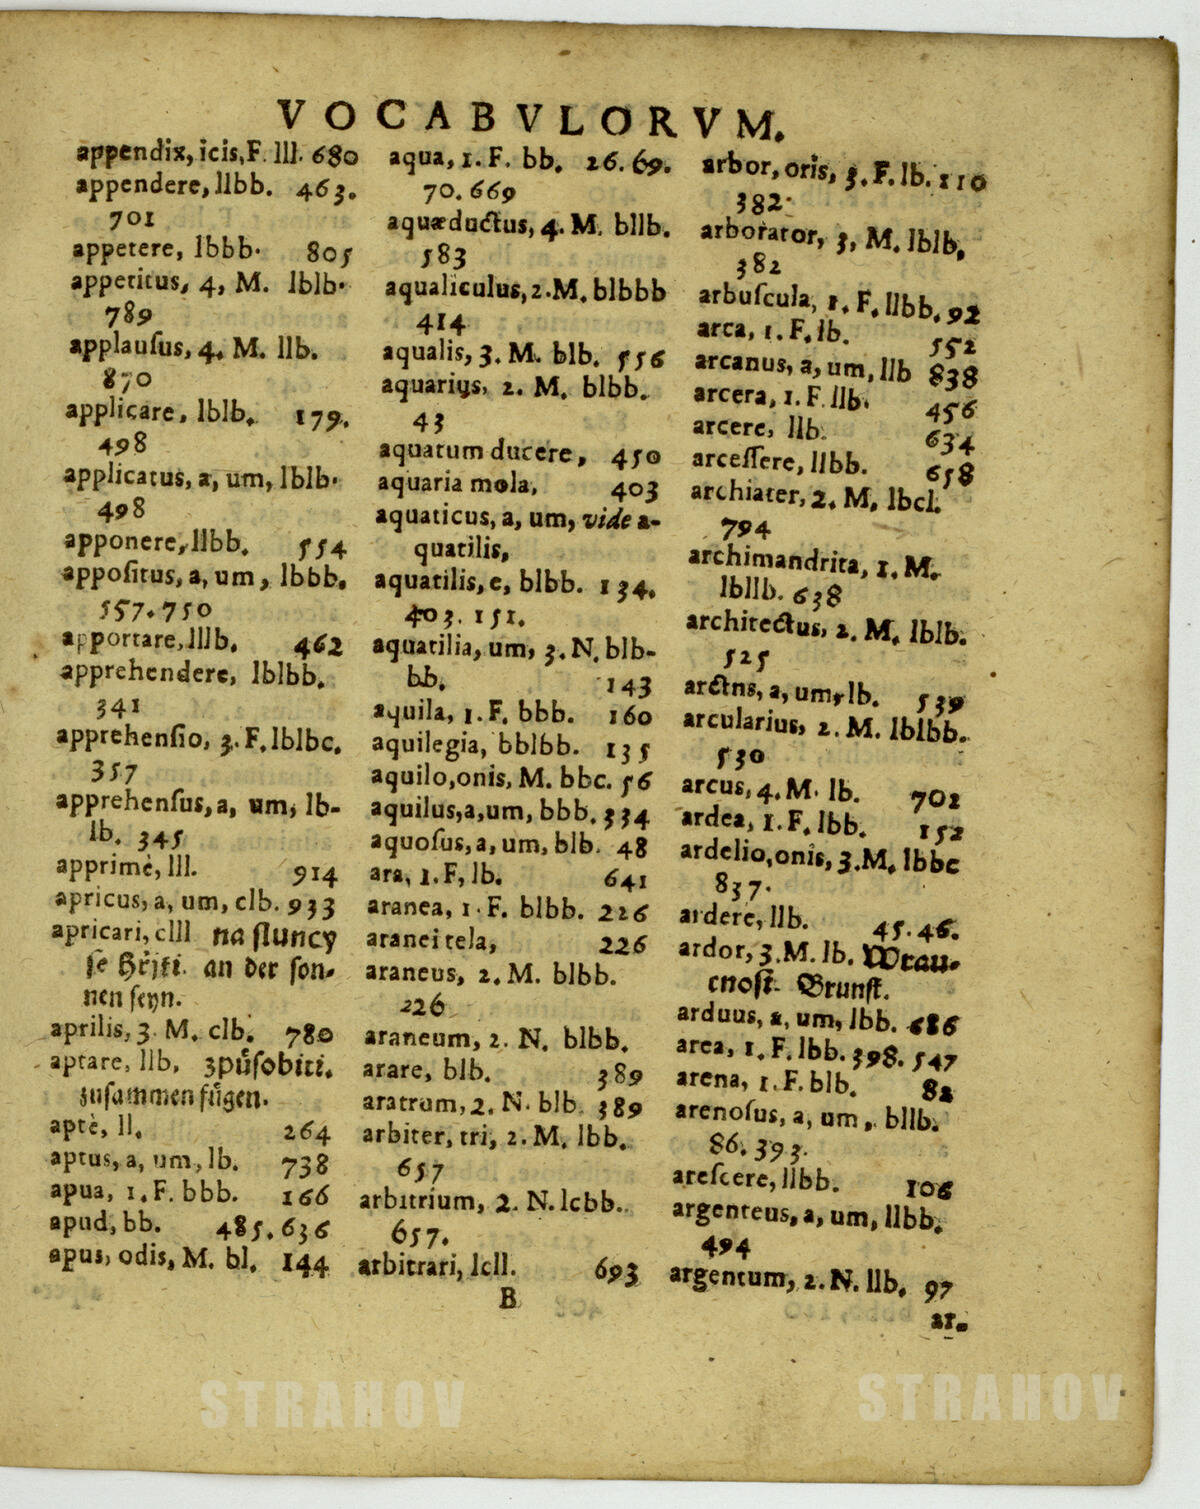 VOCABVLORVM.
appendix, icis, F. lll. 680
appendere, llbb. 463.
701
appetere, lbbb. 805
appetitus, 4, M. lblb.
789
applauſus, 4. M. llb.
870
applicare, lblb. 179.
498
applicatus, a, um, lblb.
498
apponere, llbb. 554
appoſitus, a, um, lbbb.
557. 750
apportare, lllb. 462
apprehendere, lblbb.
341
apprehenſio, 3. F. lblbc.
357
apprehenſus, a, um, lb-
lb. 345
apprimè, lll. 914
apricus, a, um, clb. 933
apricari, clll na ſluncy
ſe Hřjti. an der ſon-
nen ſeyn.
aprilis, 3. M. clb. 780
aptare, llb. způſobiti.
zuſammen fůgen.
aptè, ll. 264
aptus, a, um, lb. 738
apua, 1. F. bbb. 166
apud, bb. 485. 636
apus, odis, M. bl. 144
aqua, 1. F. bb. 26. 69.
70. 669
aquæductus, 4. M. bllb.
583
aqualiculus, 2. M. blbbb
414
aqualis, 3. M. blb. 556
aquarius, 2. M. blbb.
43
aquatum ducere, 450
aquaria mola, 403
aquaticus, a, um, vide a-
quatilis,
aquatilis, e, blbb. 134.
403. 151.
aquatilia, um, 3. N. blb-
bb. 143
aquila, 1. F. bbb. 160
aquilegia, bblbb. 135
aquilo, onis, M. bbc. 56
aquilus, a, um, bbb. 334
aquoſus, a, um, blb. 48
ara, 1. F, lb. 641
aranea, 1. F. blbb. 226
aranei tela, 226
araneus, 2. M. blbb.
226
araneum, 2. N. blbb.
arare, blb. 389
aratrum, 2. N. blb. 389
arbiter, tri, 2. M. lbb.
657
arbitrium, 2. N. lcbb.
657.
arbitrari, lcll. 693
B
arbor, oris, 3. F. lb. 110
382.
arborator, 3, M. lblb,
382
arbuſcula, 1. F. llbb. 92
arca, 1. F. lb. 552
arcanus, a, um, llb 838
arcera, 1. F. llb. 456
arcere, llb. 634
arceſſere, llbb. 658
archiater, 2. M. lbcl.
794
archimandrita, 1. M.
lbllb. 638
architectus, 2. M. lblb.
525
arctns, a, um, lb. 539
arcularius, 2. M. lblbb.
530
arcus, 4. M. lb. 702
ardea, 1. F. lbb. 152
ardelio, onis, 3. M. lbbc
837.
ardere, llb. 45. 46.
ardor, 3. M. lb. Wrau-
cnoſt. Brunſt.
arduus, a, um, lbb. 686
area, 1. F. lbb. 398. 547
arena, 1. F. blb. 82
arenoſus, a, um, bllb.
86. 393.
areſcere, llbb. 106
argenteus, a, um, llbb.
494
argentum, 2. N. llb. 97
ar-
STRAHOV
STRAHOV